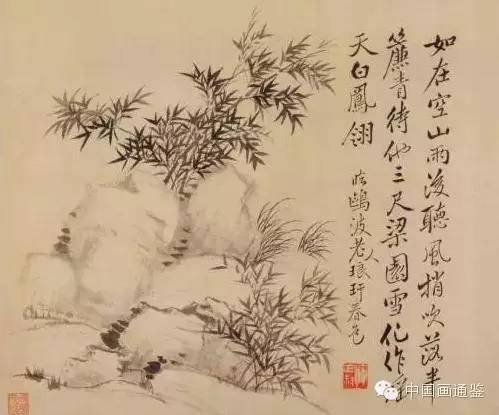 如在空山雨後聽風梢吹落半
簾青待他三尺梁園雪化作
天白鳳翎
臨鷗波老人琅玕春色
中国画通鉴